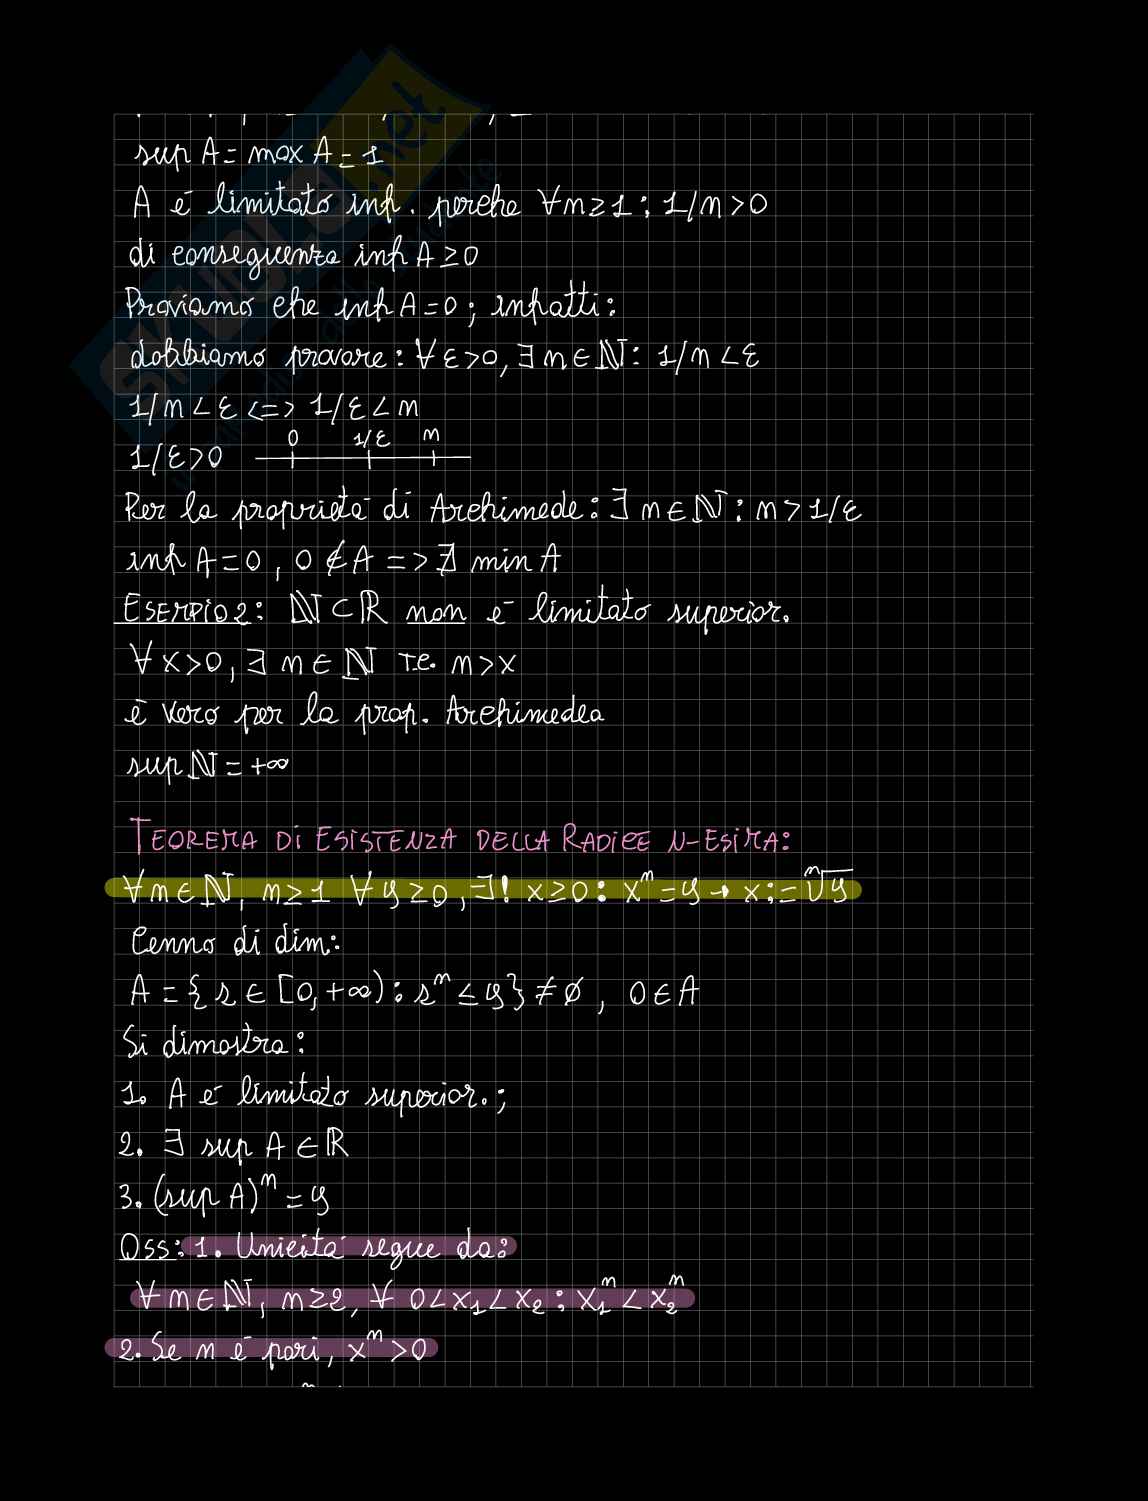 sup A = max A = 1
A è limitato inf. perche ∀n≥1 : 1/n > 0
di conseguenza inf A ≥ 0
Proviamo che inf A = 0 ; infatti:
dobbiamo provare : ∀ε>0, ∃ n∈ℕ: 1/n < ε
1/n < ε <=> 1/ε < n
1/ε > 0 0 1/ε n
Per la proprietà di Archimede: ∃ n∈ℕ : n > 1/ε
inf A = 0 , 0 ∉ A => ∄ min A
ESEMPIO 2: ℕ⊂ℝ non è limitato superior.
∀ x>0, ∃ n∈ℕ T.c. n > x
è vero per la prop. Archimedea
sup ℕ = +∞
TEOREMA DI ESISTENZA DELLA RADICE N-ESIMA:
∀n∈ℕ, n≥1 ∀y≥0, ∃! x≥0 : xⁿ = y → x := ⁿ√y
Cenno di dim:
A = {s ∈ [0,+∞) : sⁿ ≤ y} ≠ ∅ , 0∈A
Si dimostra:
1. A è limitato superior. ;
2. ∃ sup A ∈ ℝ
3. (sup A)ⁿ = y
Oss: 1. Unicità segue da:
∀n∈ℕ, n≥2, ∀ 0<x₁<x₂ : x₁ⁿ < x₂ⁿ
2. Se n è pari, xⁿ > 0